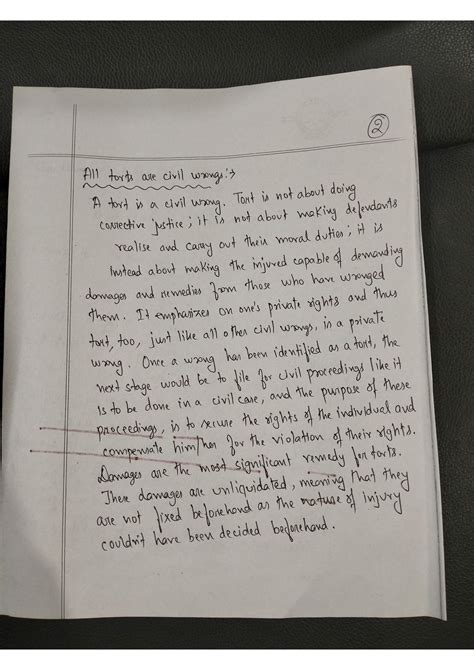 2
All torts are civil wrongs:→
A tort is a civil wrong. Tort is not about doing
corrective justice; it is not about making defendants
realise and carry out their moral duties; it is
Instead about making the injured capable of demanding
damages and remedies from those who have wronged
them. It emphasizes on one's private rights and thus
tort, too, just like all other civil wrongs, is a private
wrong. Once a wrong has been identified as a tort, the
next stage would be to file for civil proceedings like it
is to be done in a civil case, and the purpose of these
proceedings, is to secure the rights of the individual and
compensate him/her for the violation of their rights.
Damages are the most significant remedy for torts.
These damages are unliquidated, meaning that they
are not fixed beforehand as the nature of injury
couldn't have been decided beforehand.